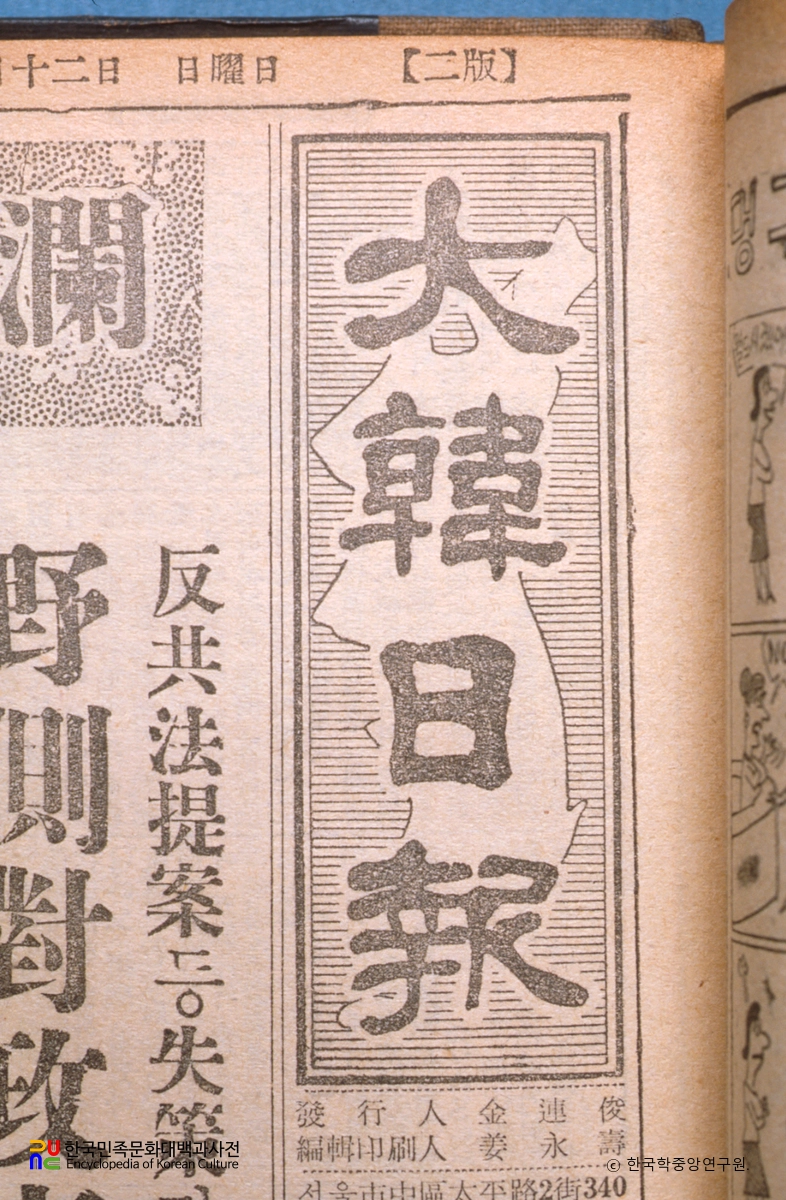 十二日 日曜日 【二版】
大韓日報
發行人 金連俊
編輯印刷人 姜永壽
서울市中區太平路2街340
瀾
反共法提案등失策
野側對政
한국민족문화대백과사전
Encyclopedia of Korean Culture
© 한국학중앙연구원